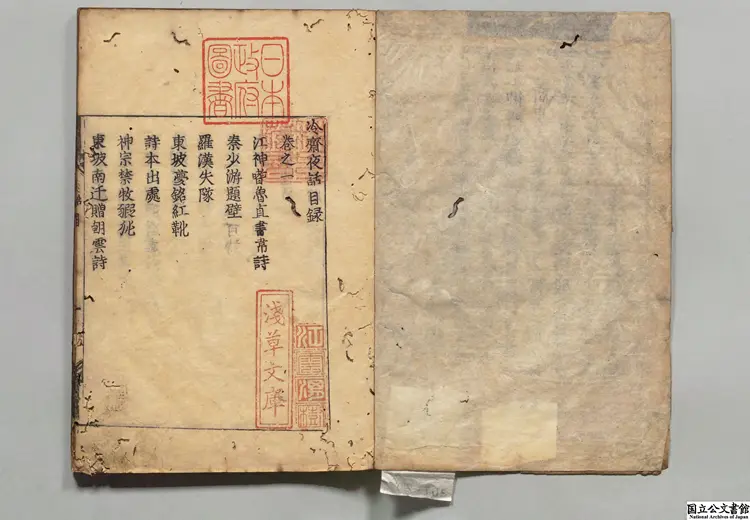 日本
政府
圖書
冷齋夜話目録
卷之一
江神嗜魯直書韋詩
秦少游題壁
羅漢失隊
東坡夢銘紅靴
詩本出處
神宗禁牧豭㹠
東坡南迁贈朝雲詩
淺草文庫
国立公文書館
National Archives of Japan